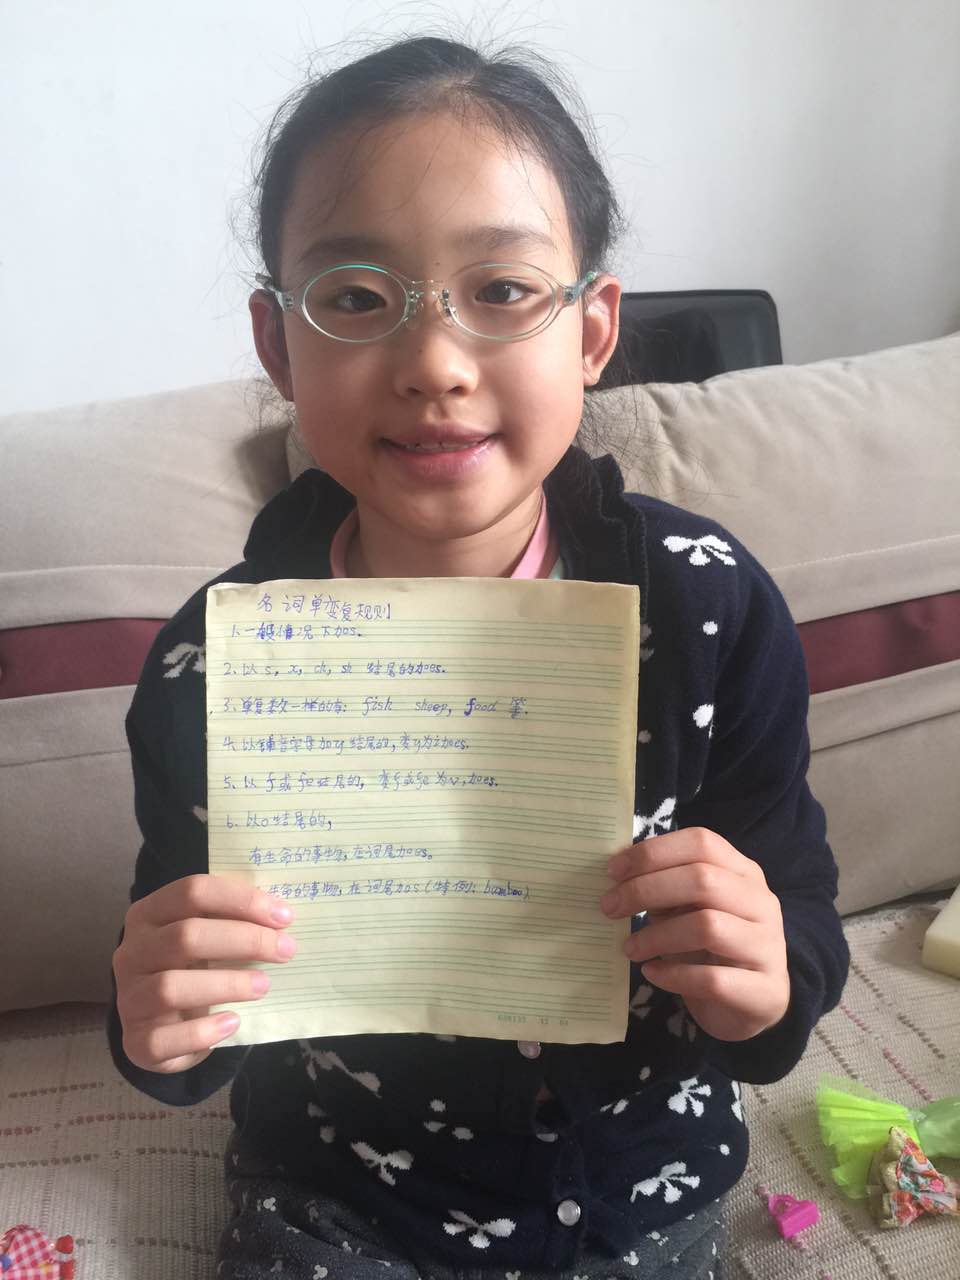 名词单变复规则
1、一般情况下加s.
2、以 s, x, ch, sh 结尾的加es.
3、单复数一样的有: fish sheep, food 等.
4、以辅音字母加y结尾的,变y为i加es.
5、以 f 或 fe 结尾的, 变f或fe 为v,加es.
6、以o结尾的,
有生命的事物,在词尾加es。
生命的事物,在词尾加s(特例: bamboo)